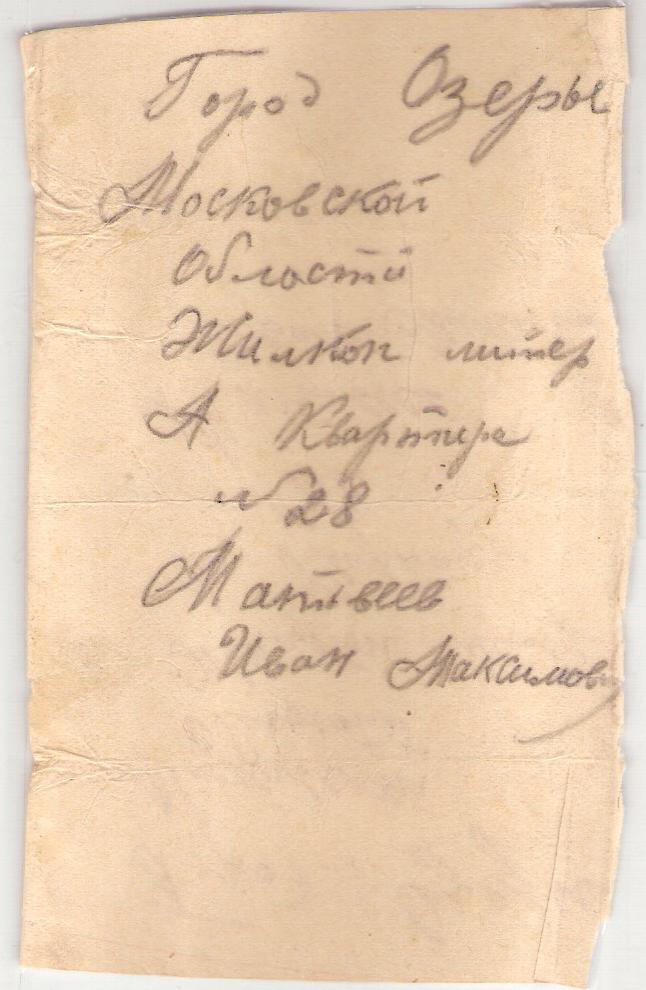 Город Озеры
Московской
Области
Жилкоп литер
А Квартира
№ 28
Матвеев
Иван Максимович